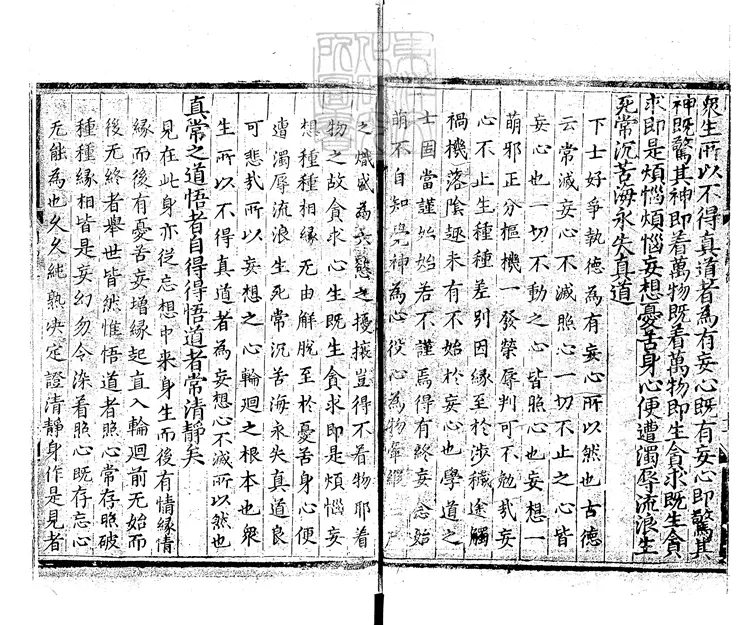 衆生所以不得真道者為有妄心既有妄心即驚其
神既驚其神即着萬物既着萬物即生貪求既生貪
求即是煩惱煩惱妄想憂苦身心便遭濁辱流浪生
死常沉苦海永失真道
下士好爭執德為有妄心所以然也古德
云常滅妄心不滅照心一切不止之心皆
妄心也一切不動之心皆照心也妄想一
萌邪正分樞機一發榮辱判可不勉哉妄
心不止生種種差別因緣至於涉穢途觸
禍機落陰趣未有不始於妄心也學道之
士固當謹始始若不謹焉得有終妄念始
萌不自知覺神為心役心為物牽縱
之熾盛為六慾之擾攘豈得不着物耶着
物之故貪求心生既生貪求即是煩惱妄
想種種相緣无由解脫至於憂苦身心便
遭濁辱流浪生死常沉苦海永失真道良
可悲哉所以妄想之心輪迴之根本也衆
生所以不得真道者為妄想心不滅所以然也
真常之道悟者自得得悟道者常清靜矣
見在此身亦從忘想中来身生而後有情緣情
緣而後有憂苦妄增緣起直入輪迴前无始而
後无終者舉世皆然惟悟道者照心常存照破
種種緣相皆是妄幻勿令染着照心既存忘心
无能為也久久純熟决定證清靜身作是見者